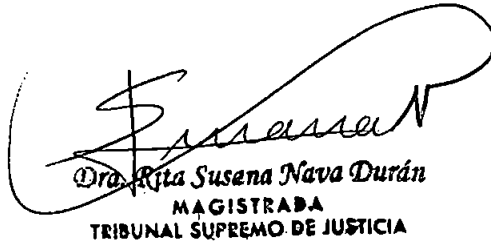 Susana N
Dra. Rita Susana Nava Durán
MAGISTRADA
TRIBUNAL SUPREMO DE JUSTICIA